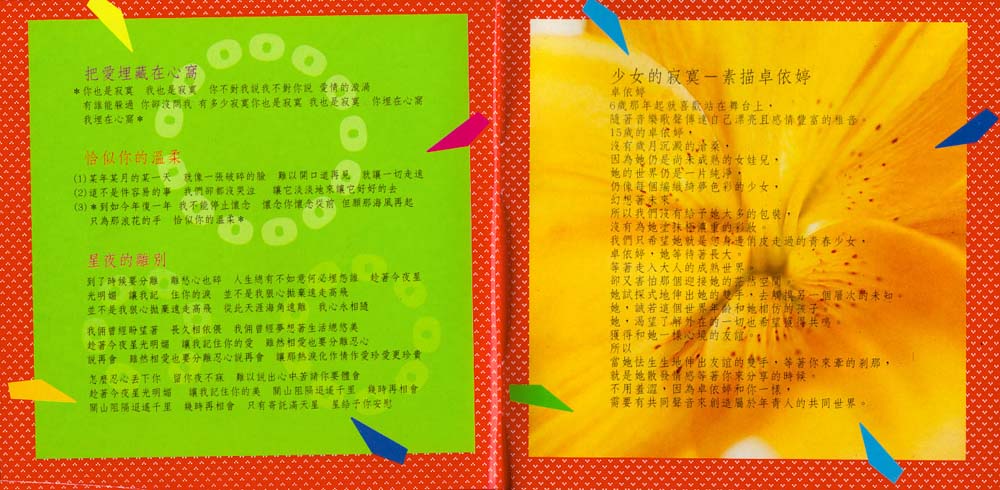 把愛埋藏在心窩
*你也是寂寞 我也是寂寞 你不對我説我不對你說 愛情的漩渦
有誰能躲過 你卻沒問我 有多少寂寞你也是寂寞 我也是寂寞 你埋在心窩
我埋在心窩*
恰似你的溫柔
(1)某年某月的某一天 就像一張破碎的臉 難以開口道再見 就讓一切走遠
(2)這不是件容易的事 我們卻都沒哭泣 讓它淡淡地來讓它好好的去
(3)*到如今年復一年 我不能停止懷念 懷念你懷念從前 但願那海風再起
只為那浪花的手 恰似你的溫柔*
星夜的離別
到了時候要分離 離愁心也碎 人生總有不如意何必埋怨誰 趁著今夜星
光明媚 讓我記 住你的淚 並不是我狠心拋棄遠走高飛
並不是我狠心拋棄遠走高飛 從此天涯海角遠離 我心永相隨
我倆曾經盼望著 長久相依偎 我倆曾經夢想著生活總悠美
趁著今夜星光明媚 讓我記住你的愛 雖然相愛也要分離忍心
說再會 雖然相愛也要分離忍心說再會 讓那熱淚化作情作愛珍愛更珍貴
怎麼忍心丟下你 留你夜不寐 難以說出心中苦請你要體會
趁著今夜星光明媚 讓我記住你的美 關山阻隔迢遙千里 幾時再相會
關山阻隔迢遙千里 幾時再相會 只有寄託滿天星 星給子你安慰
少女的寂寞－素描卓依婷
卓依婷
6歲那年起就喜歡站在舞台上，
隨著音樂歌聲傳達自己漂亮且感情豐富的稚音。
15歲的卓依婷，
沒有歲月沉澱的滄桑，
因為她仍是尚未成熟的女娃兒，
她的世界仍是一片純淨，
仍像每個編織綺夢色彩的少女，
幻想著未來
所以我們沒有給子她太多的包裝，
沒有為她塗抹極濃重的彩妝。
我們只希望她就是您身邊俏皮走過的青春少女，
卓依婷，她等待著長大。
等著走入大人的成熟世界。
卻又害怕那個迎接她的茫然空間
她試探式地伸出她的雙手，去觸摸另一個層次的未知。
她，誠若這個世界年齡和她相仿的孩子
她，渴望了解外在的一切也希望獲得共鳴。
獲得和她一樣心境的友誼。
所以
當她怯生生地伸出友誼的雙手，等著你來牽的剎那，
就是她散發情感等著你來分享的時候。
不用羞澀，因為卓依婷和你一樣，
需要有共同聲音來創造屬於年青人的共同世界。